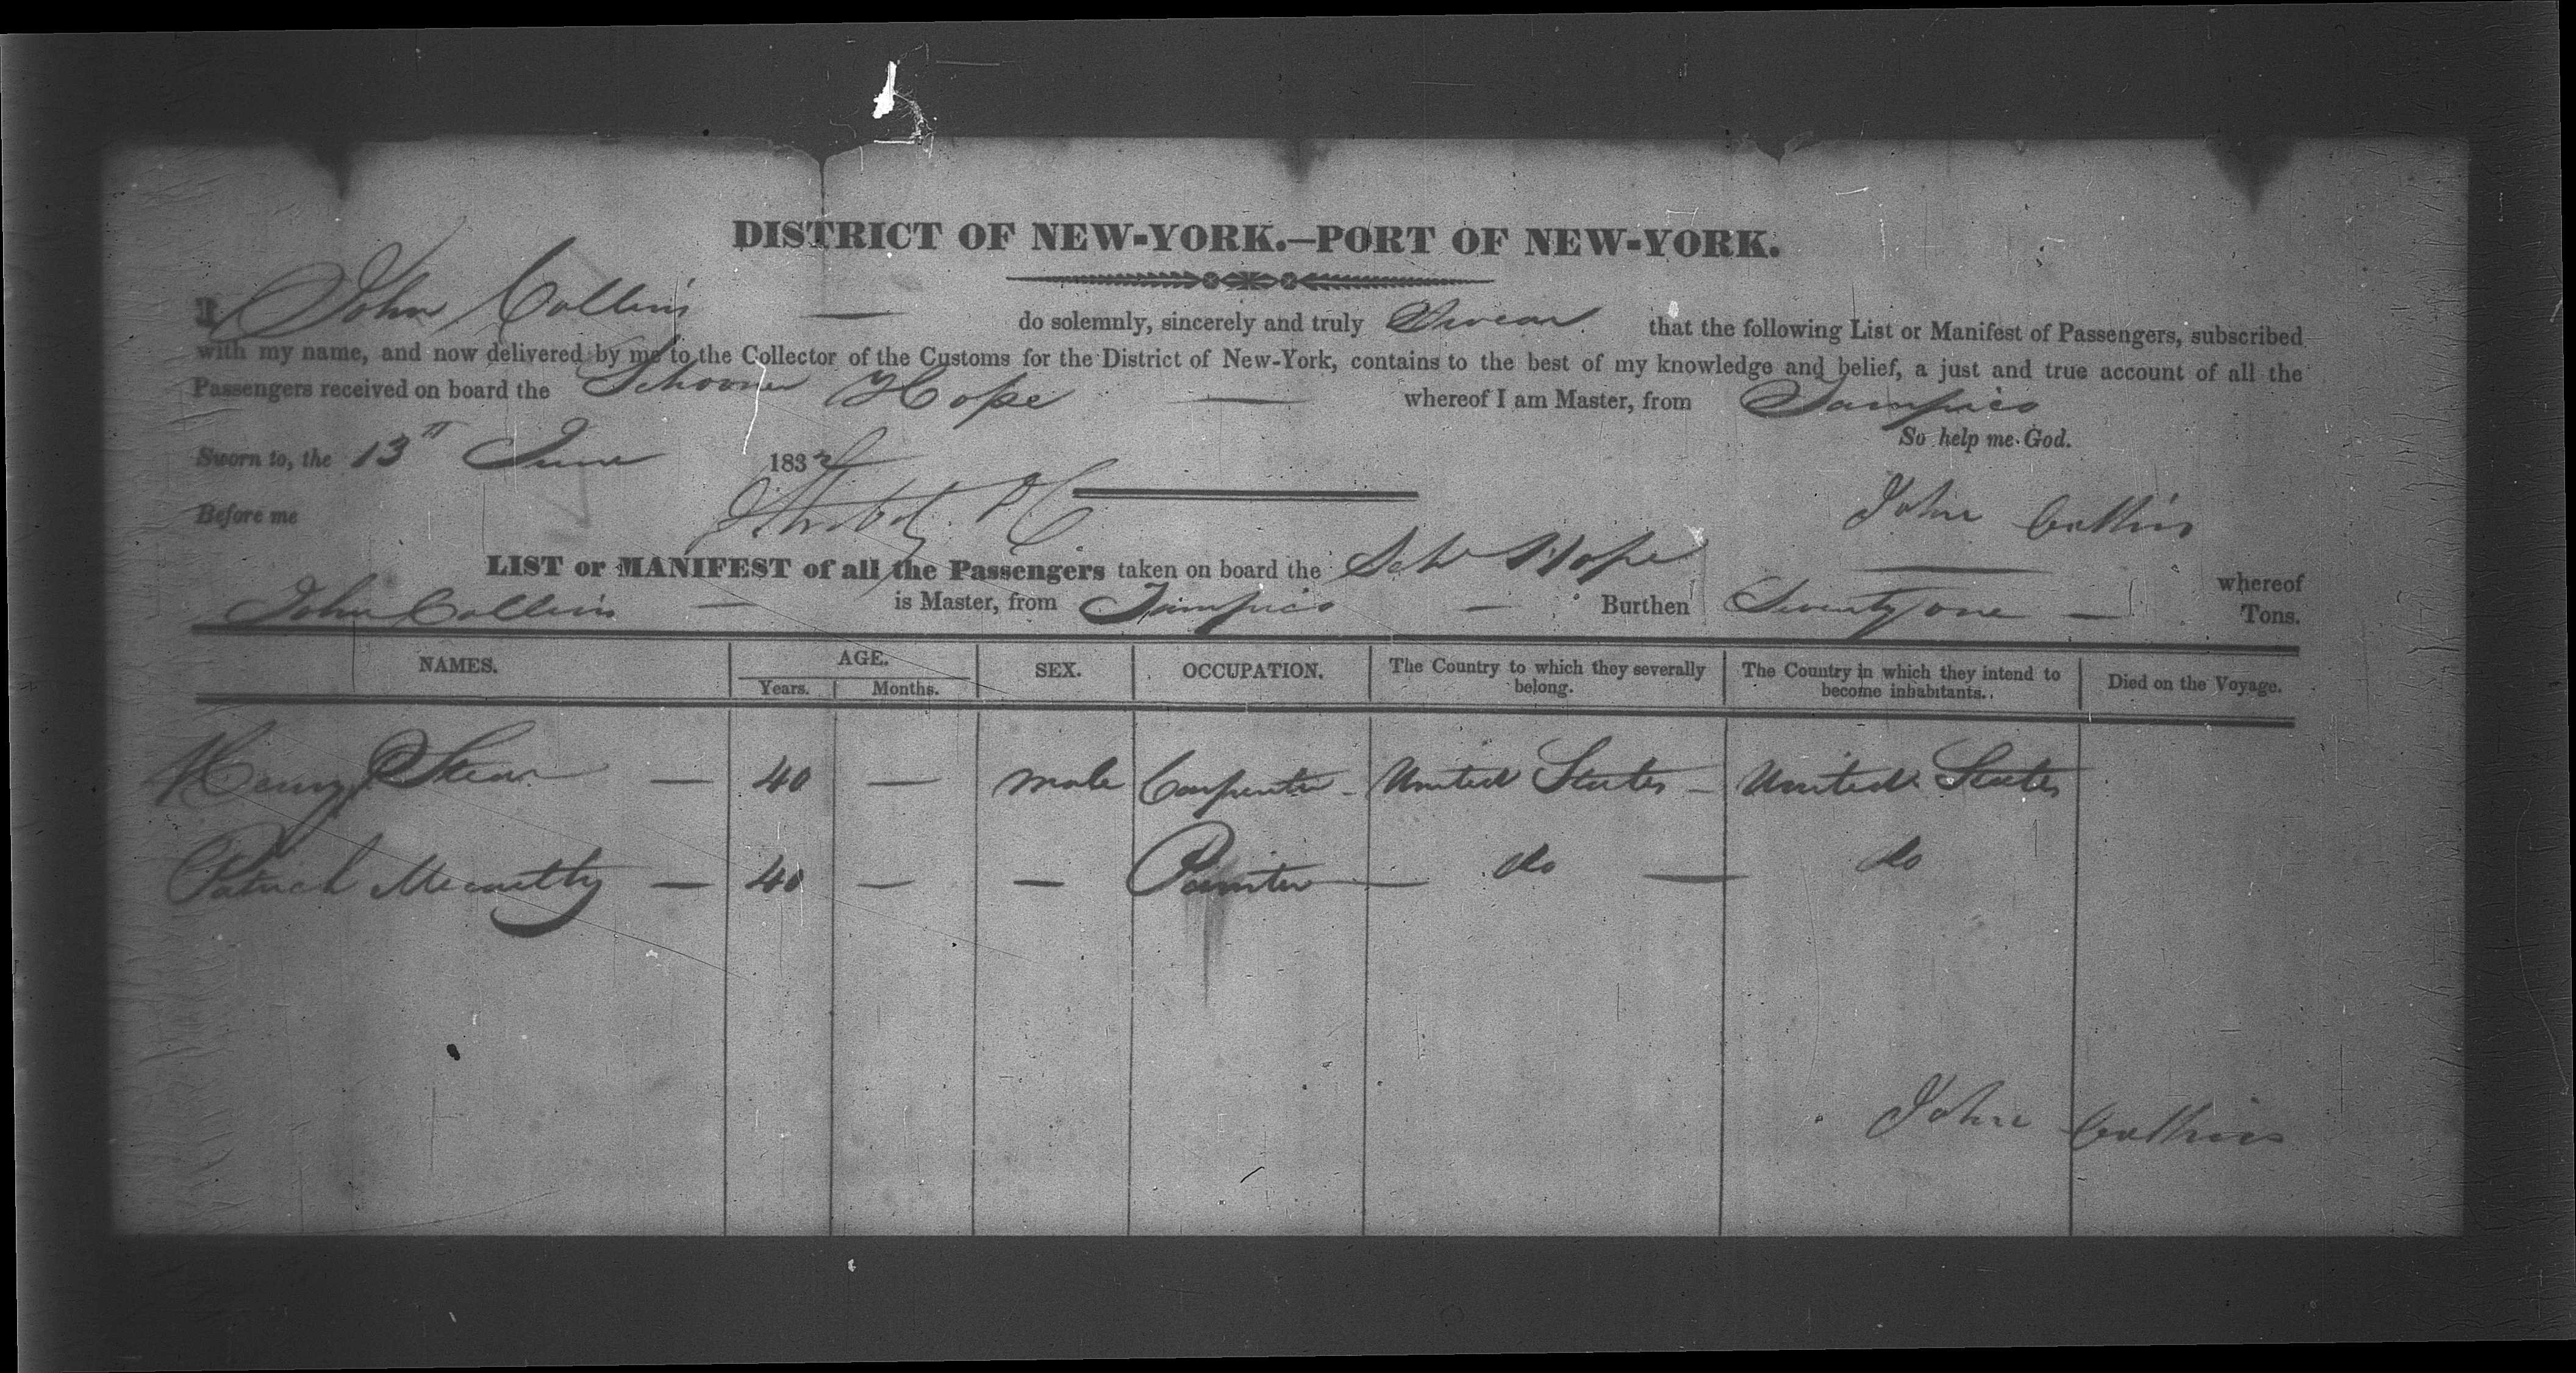 DISTRICT OF NEW-YORK.—PORT OF NEW-YORK.
I John Collins — do solemnly, sincerely and truly Swear that the following List or Manifest of Passengers, subscribed
with my name, and now delivered by me to the Collector of the Customs for the District of New-York, contains to the best of my knowledge and belief, a just and true account of all the
Passengers received on board the Schooner Hope — whereof I am Master, from Tampico
So help me God.
Sworn to, the 13th June 183
John Collins
Before me
LIST or MANIFEST of all the Passengers taken on board the Schr Hope whereof
John Collins — is Master, from Tampico — Burthen Seventy one — Tons.
NAMES. AGE. SEX. OCCUPATION. The Country to which they severally belong. The Country in which they intend to become inhabitants. Died on the Voyage.
Years. Months.
Henry — 40 — male Carpenter - United States - United States
Patrick Mccarthy — 40 — — Painter — do — do
John Collins